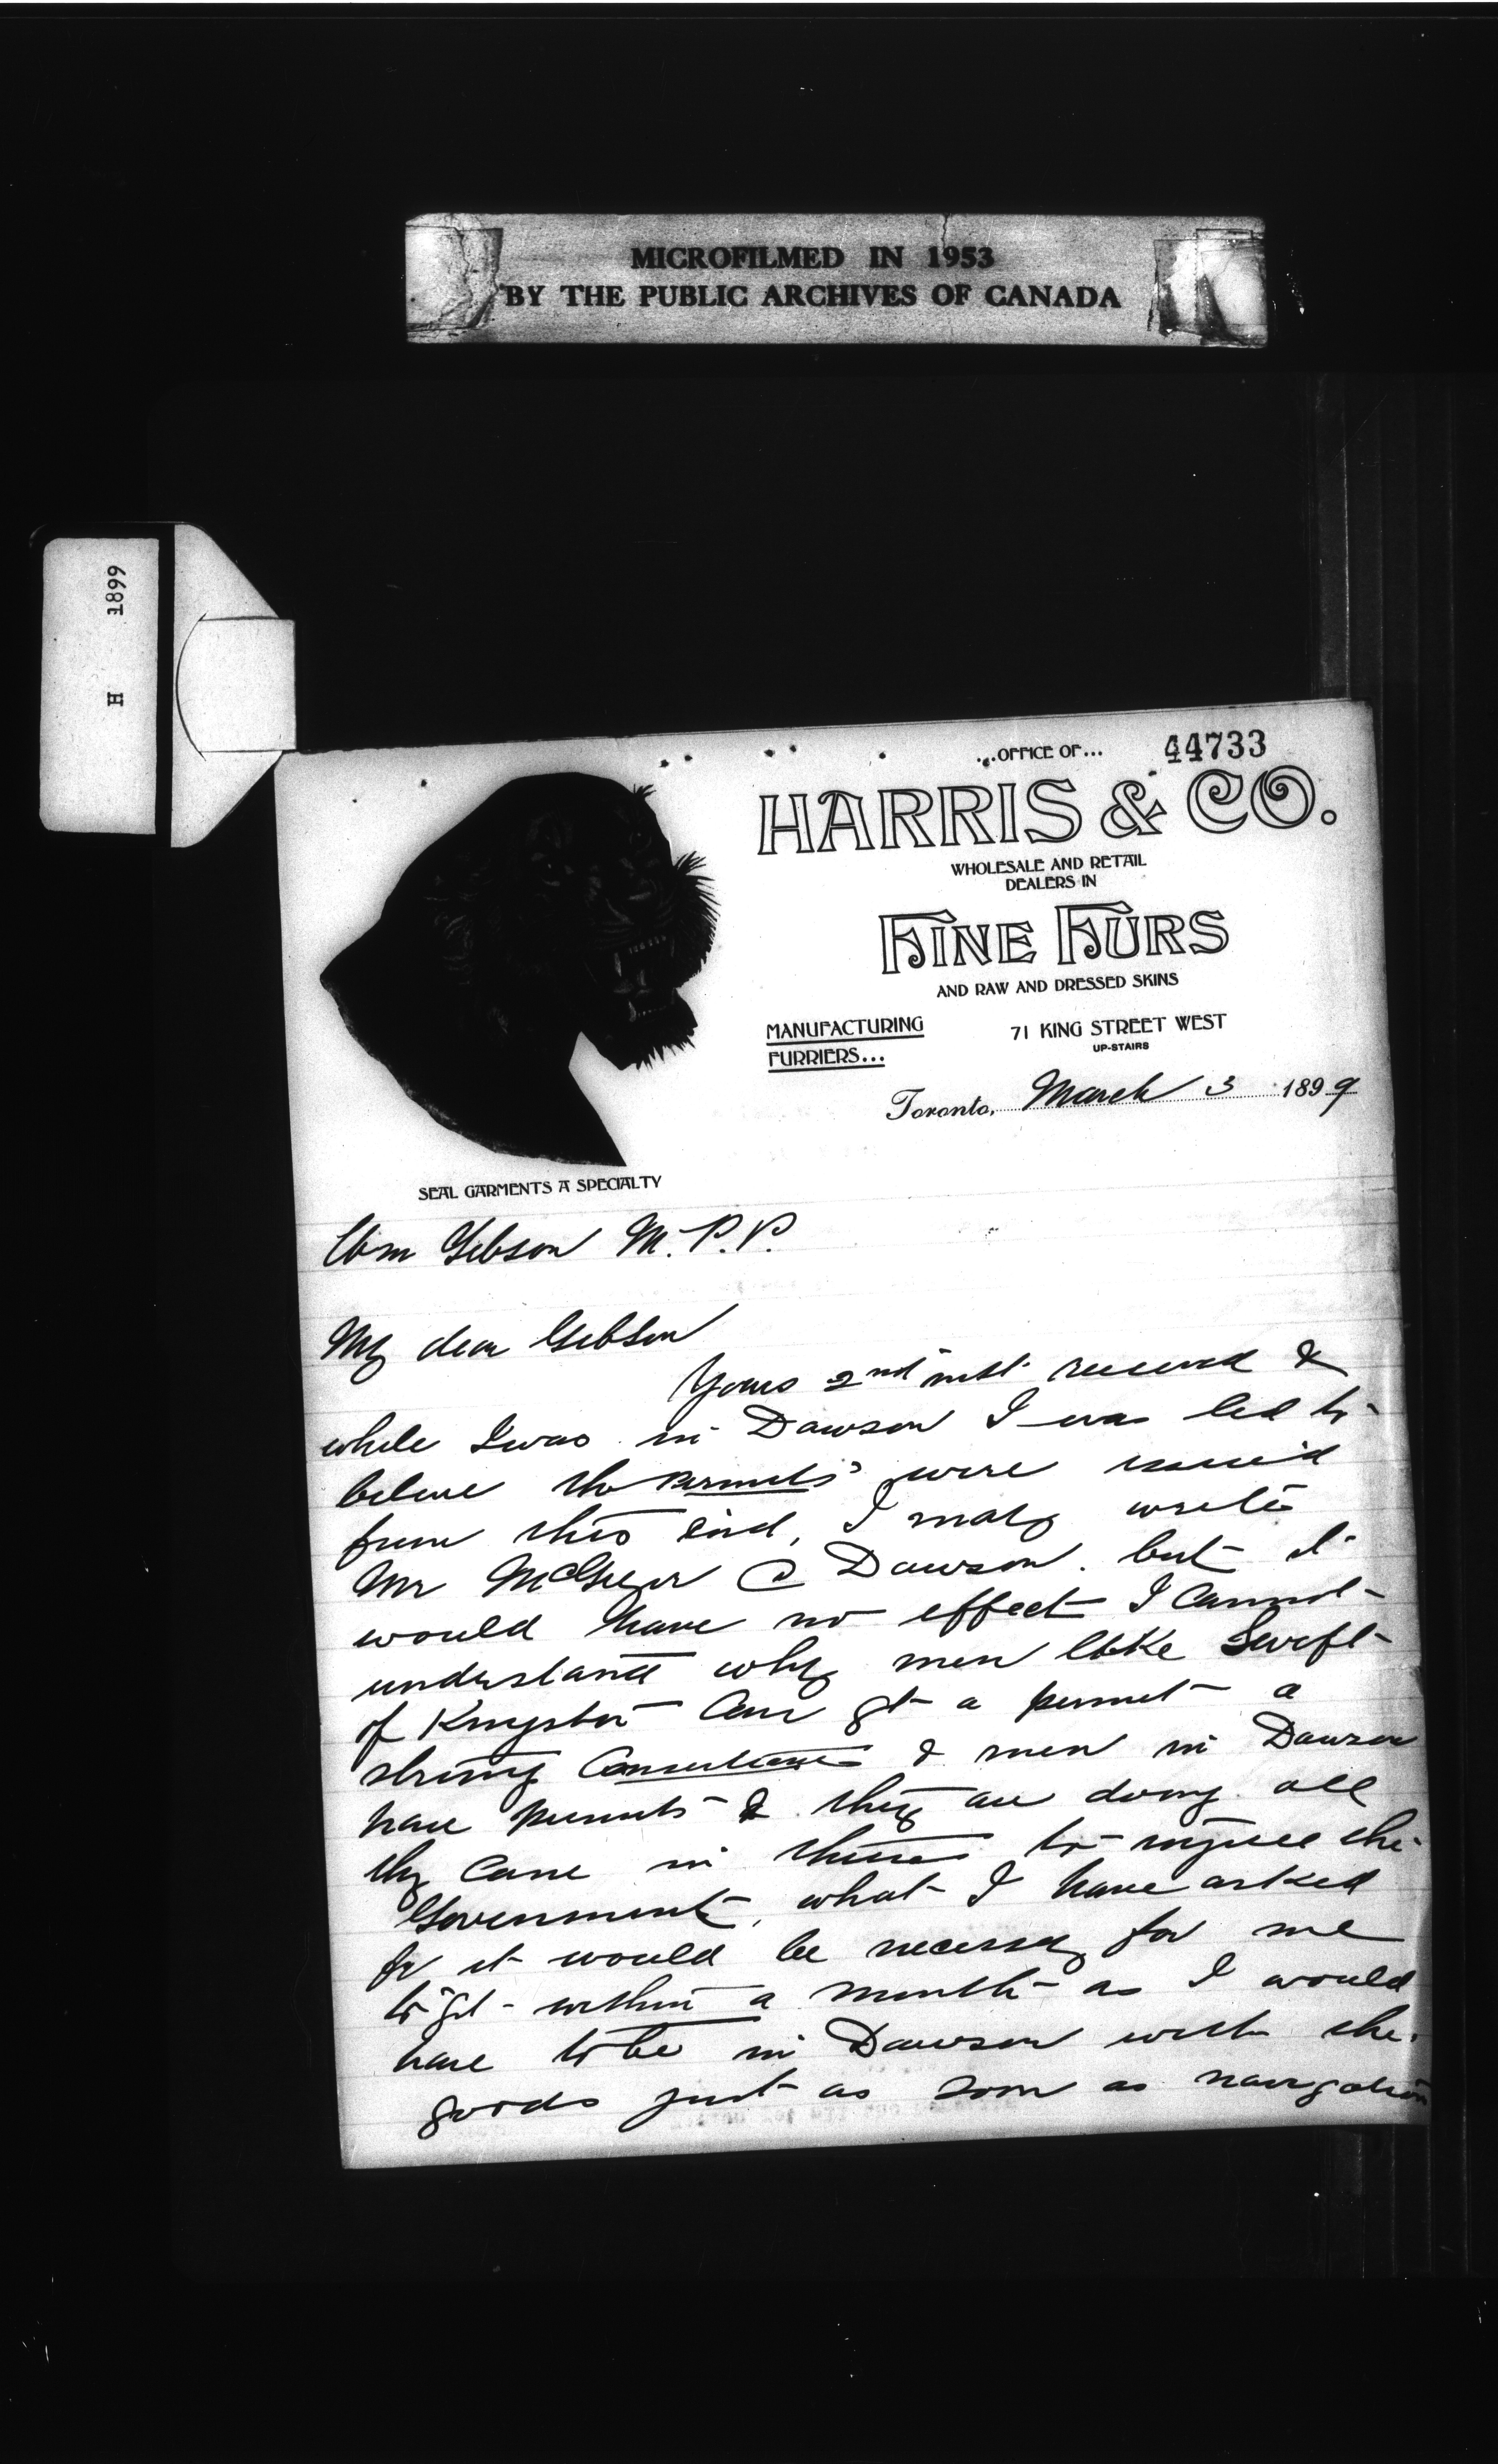 MICROFILMED IN 1953
BY THE PUBLIC ARCHIVES OF CANADA
H 1899
44733
...OFFICE OF...
HARRIS & CO.
WHOLESALE AND RETAIL
DEALERS IN
FINE FURS
AND RAW AND DRESSED SKINS
MANUFACTURING
FURRIERS...
71 KING STREET WEST
UP-STAIRS
Toronto, March 3 1899
SEAL GARMENTS A SPECIALTY
Wm Gibson M.P.P.
My dear Gibson
Yours 2nd inst received &
while I was in Dawson I was led to
believe the permits were issued
from this end, I may write
Mr McGregor @ Dawson. but it
would have no effect I cannot
understand why men like Swift
of Kingston can get a permit a
strong Conservative & men in Dawson
have permits & they are doing all
they cane in to injure the
Government, what I have asked
for it would be necessy for me
to get within a month as I would
have to be in Dawson with the
goods just as soon as navigation